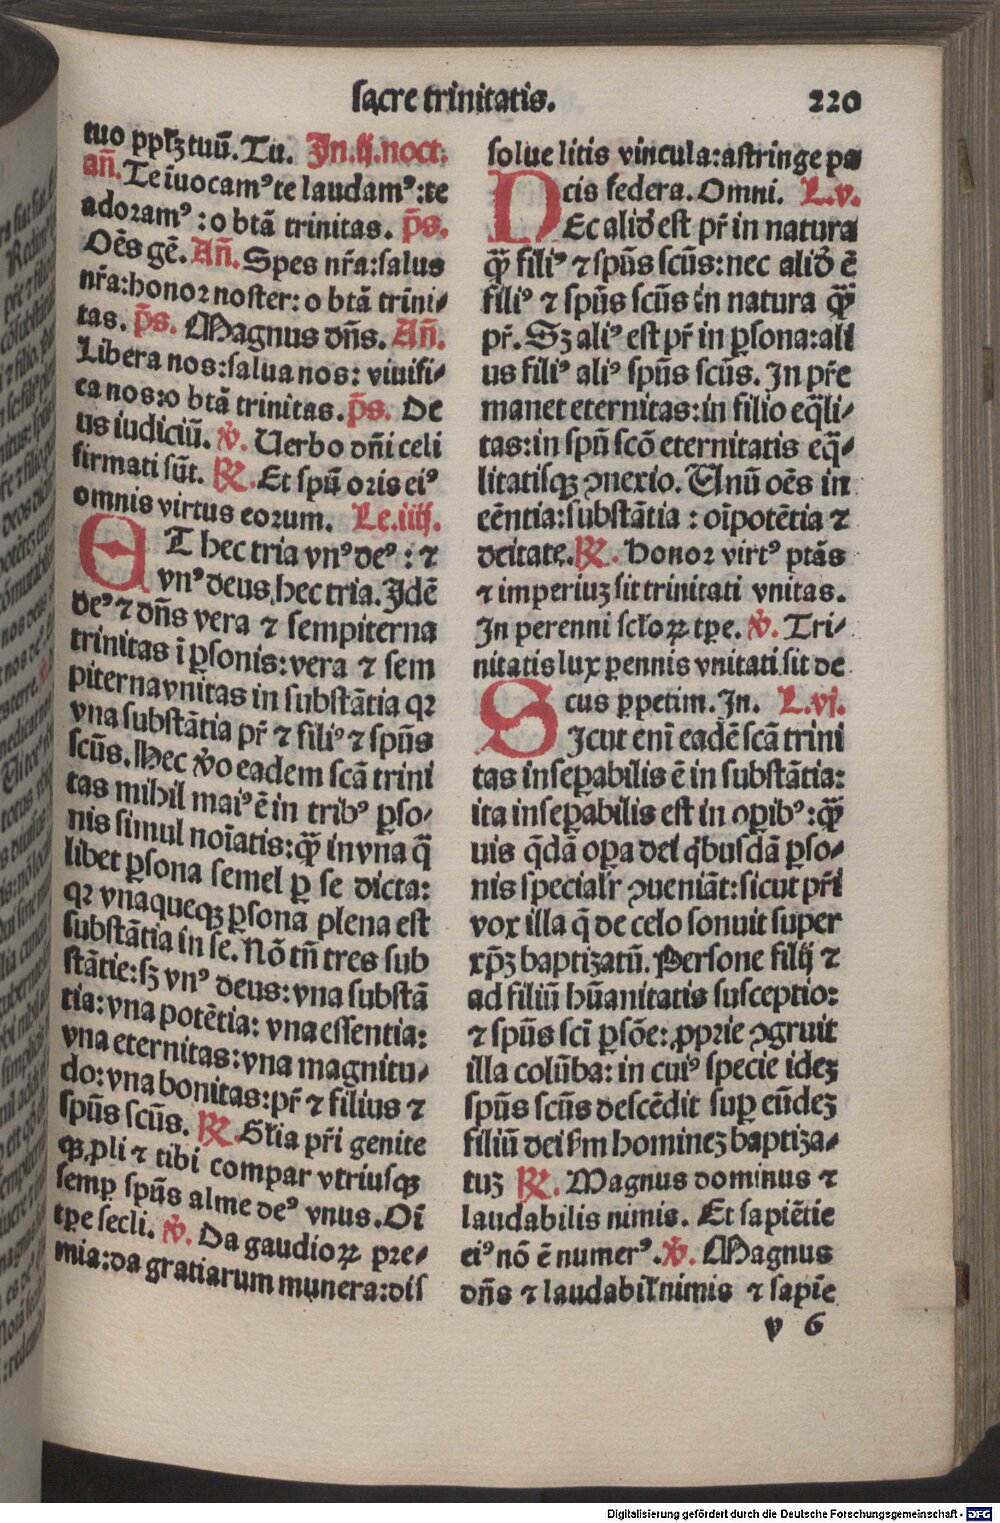 sacre trinitatis.
220
tuo ppłꝫ tuū. Tu. In.ij.noct.
añ. Te īuocamꝰ te laudamꝰ: te
adoramꝰ: o btā trinitas. p̄s.
Oēs gē. Añ. Spes nr̄a: salus
nr̄a: honor noster: o btā trini⸗
tas. p̄s. Magnus dn̄s. Añ.
Libera nos: salua nos: viuifi⸗
ca nos: o btā trinitas. p̄s. De
us iudiciū. v̇. Uerbo dn̄i celi
firmati sūt. ℞. Et spū oris eiꝰ
omnis virtus eorum. Le.iiij.
ET hec tria vnꝰ deꝰ: ⁊
vnꝰ deus, hec tria. Idē
deꝰ ⁊ dn̄s vera ⁊ sempiterna
trinitas ī ꝑsonis: vera ⁊ sem
piterna vnitas in substātia qꝛ
vna substātia pr̄ ⁊ filiꝰ ⁊ spūs
scūs. Hec v̇o eadem scā trini
tas mihil maiꝰ ē in tribꝰ ꝑso⸗
nis simul noīatis: qꝫ̄ in vna q̄
libet ꝑsona semel ꝑ se dicta:
qꝛ vnaqueqꝫ ꝑsona plena est
substātia in se. Nō tn̄ tres sub
stātie: sꝫ vnꝰ deus: vna substā
tia: vna potētia: vna essentia:
vna eternitas: vna magnitu⸗
do: vna bonitas: pr̄ ⁊ filius ⁊
spūs scūs. ℞. Głia pr̄i genite
qꝫ ꝓli ⁊ tibi compar vtriusqꝫ
semꝑ spūs alme deꝰ vnus. Oī
tꝑe secli. v̇. Da gaudioꝝ pre⸗
mia: da gratiarum munera: dis
solue litis vincula: astringe pa
cis federa. Omni. L.v.
NEc aliḋ est pr̄ in natura
qꝫ̄ filiꝰ ⁊ spūs scūs: nec aliḋ ē
filiꝰ ⁊ spūs scūs in natura qꝫ̄
pr̄. Sꝫ aliꝰ est pr̄ in ꝑsona: ali
us filiꝰ aliꝰ spūs scūs. In pr̄e
manet eternitas: in filio eq̄li⸗
tas: in spū scō eternitatis eq̄⸗
litatisqꝫ ꝯnexio. Unū oēs in
eēntia: substātia: oīpotētia ⁊
deitate. ℞. Honor virtꝰ ptās
⁊ imperiuꝫ sit trinitati vnitas.
In perenni scłoꝝ tꝑe. v̇. Tri⸗
nitatis lux ꝑennis vnitati sit de
cus ꝑpetim. In. L.vj.
SIcut enī eadē scā trini
tas inseꝑabilis ē in substātia:
ita inseꝑabilis est in oꝑibꝰ: qꝫ̄
uis q̄dā oꝑa dei q̇busdā ꝑso⸗
nis specialr̄ ꝯueniāt: sicut pr̄i
vox illa q̄ de celo sonuit super
xp̄ꝫ baptiꝫatū. Persone filij ⁊
ad filiū hūanitatis susceptio:
⁊ spūs scī ꝑsōe: ꝓprie ꝯgruit
illa colūba: in cuiꝰ specie ideꝫ
spūs scūs descēdit suꝑ eūdeꝫ
filiū dei ẜm homineꝫ baptiꝫa⸗
tuꝫ ℞. Magnus dominus ⁊
laudabilis nimis. Et sapiētie
eiꝰ nō ē numerꝰ. v̇. Magnus
dn̄s ⁊ laudabił nimis ⁊ sapīe
v 6
Digitalisierung gefördert durch die Deutsche Forschungsgemeinschaft - DFG